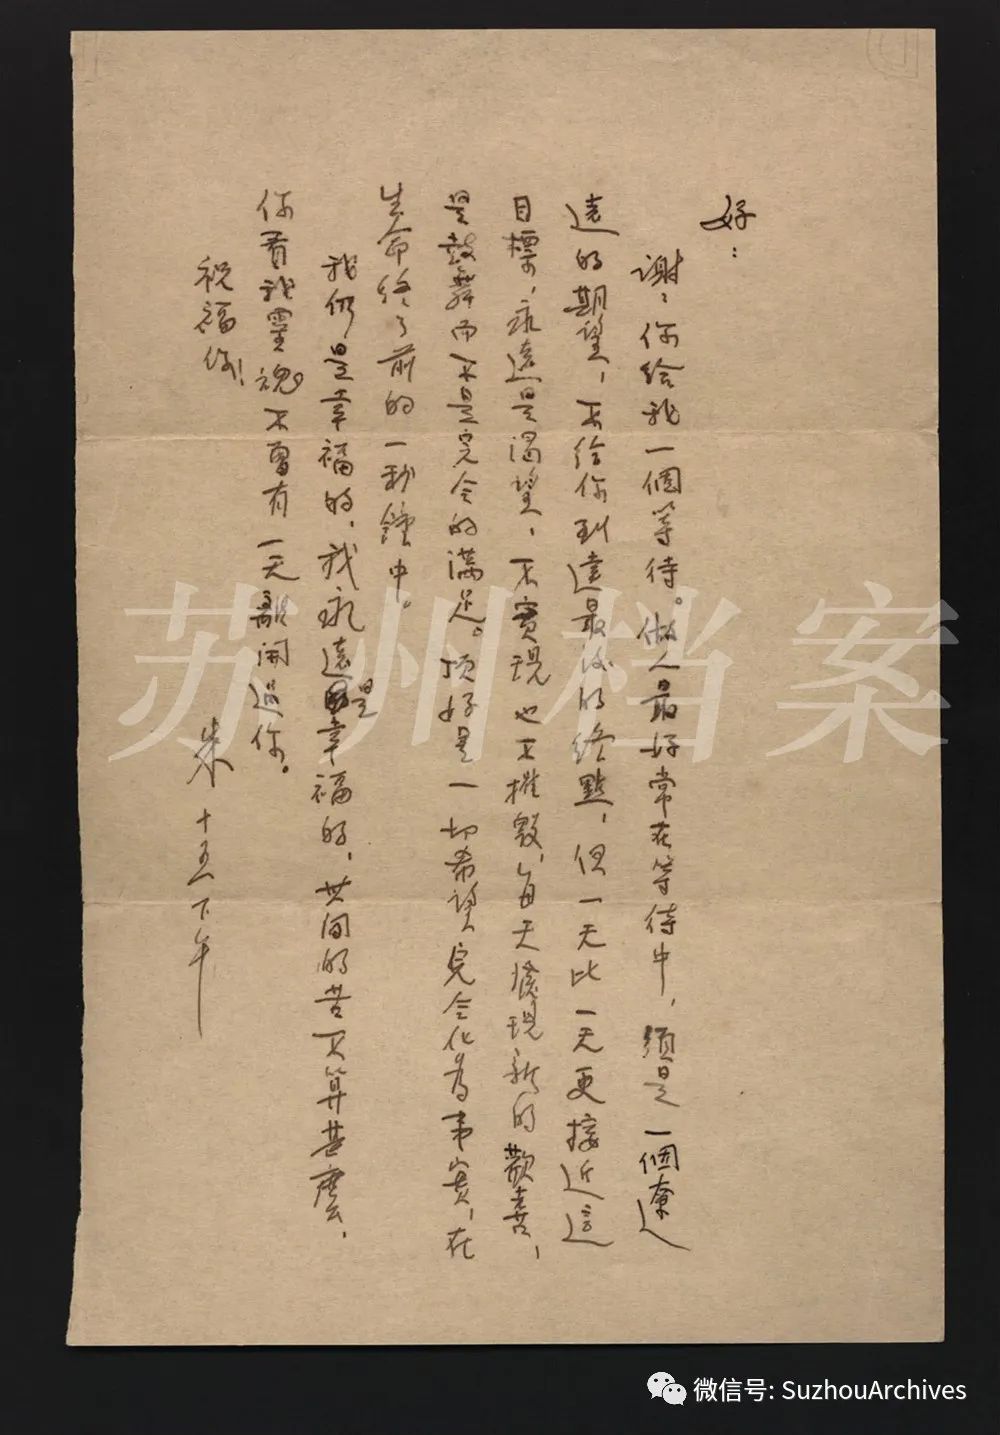 好：
謝〻你給我一個等待。做人最好常在等待中，須是一個遼
遠的期望，不給你到達最後的終點，但一天比一天更接近這
目標，永遠是渴望，不實現也不摧毀，每天發現新的歡喜，
是鼓舞而不是完全的滿足。頂好是一切希望完全化為事實，在
生命終了前的一秒鐘中。
我仍是幸福的，我永遠是幸福的，世間的苦不算甚麼，
你看我靈魂不曾有一天離開過你。
祝福你！
朱 十五下午
苏州档案
微信号: SuzhouArchives